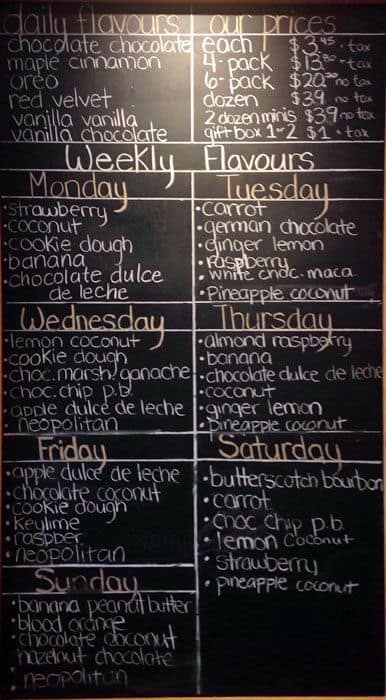 daily flavours
chocolate chocolate
maple cinnamon
oreo
red velvet
vanilla vanilla
vanilla chocolate
our prices
each $3.45 + tax
4-pack $13.80 + tax
6-pack $20.50 no tax
dozen $39 no tax
2 dozen minis $39 no tax
gift box 1-2 $1 + tax
Weekly Flavours
Monday
• strawberry
• coconut
• cookie dough
• banana
• chocolate dulce
de leche
Tuesday
• carrot
• german chocolate
• ginger lemon
• raspberry
• white choc. maca.
• Pineapple coconut
Wednesday
• lemon coconut
• cookie dough
• choc. marsh/ganache
• choc. chip p.b.
• apple dulce de leche
• neopolitan
Thursday
• almond raspberry
• banana
• chocolate dulce de leche
• coconut
• ginger lemon
• pineapple coconut
Friday
• apple dulce de leche
• chocolate coconut
• cookie dough
• keylime
• raspber
• neopolitan
Saturday
• butterscotch bourbon
• carrot
• choc chip p.b.
• lemon coconut
• strawberry
• pineapple coconut
Sunday
• banana peanut butter
• blood orange
• chocolate coconut
hazelnut chocolate
• neopolitan